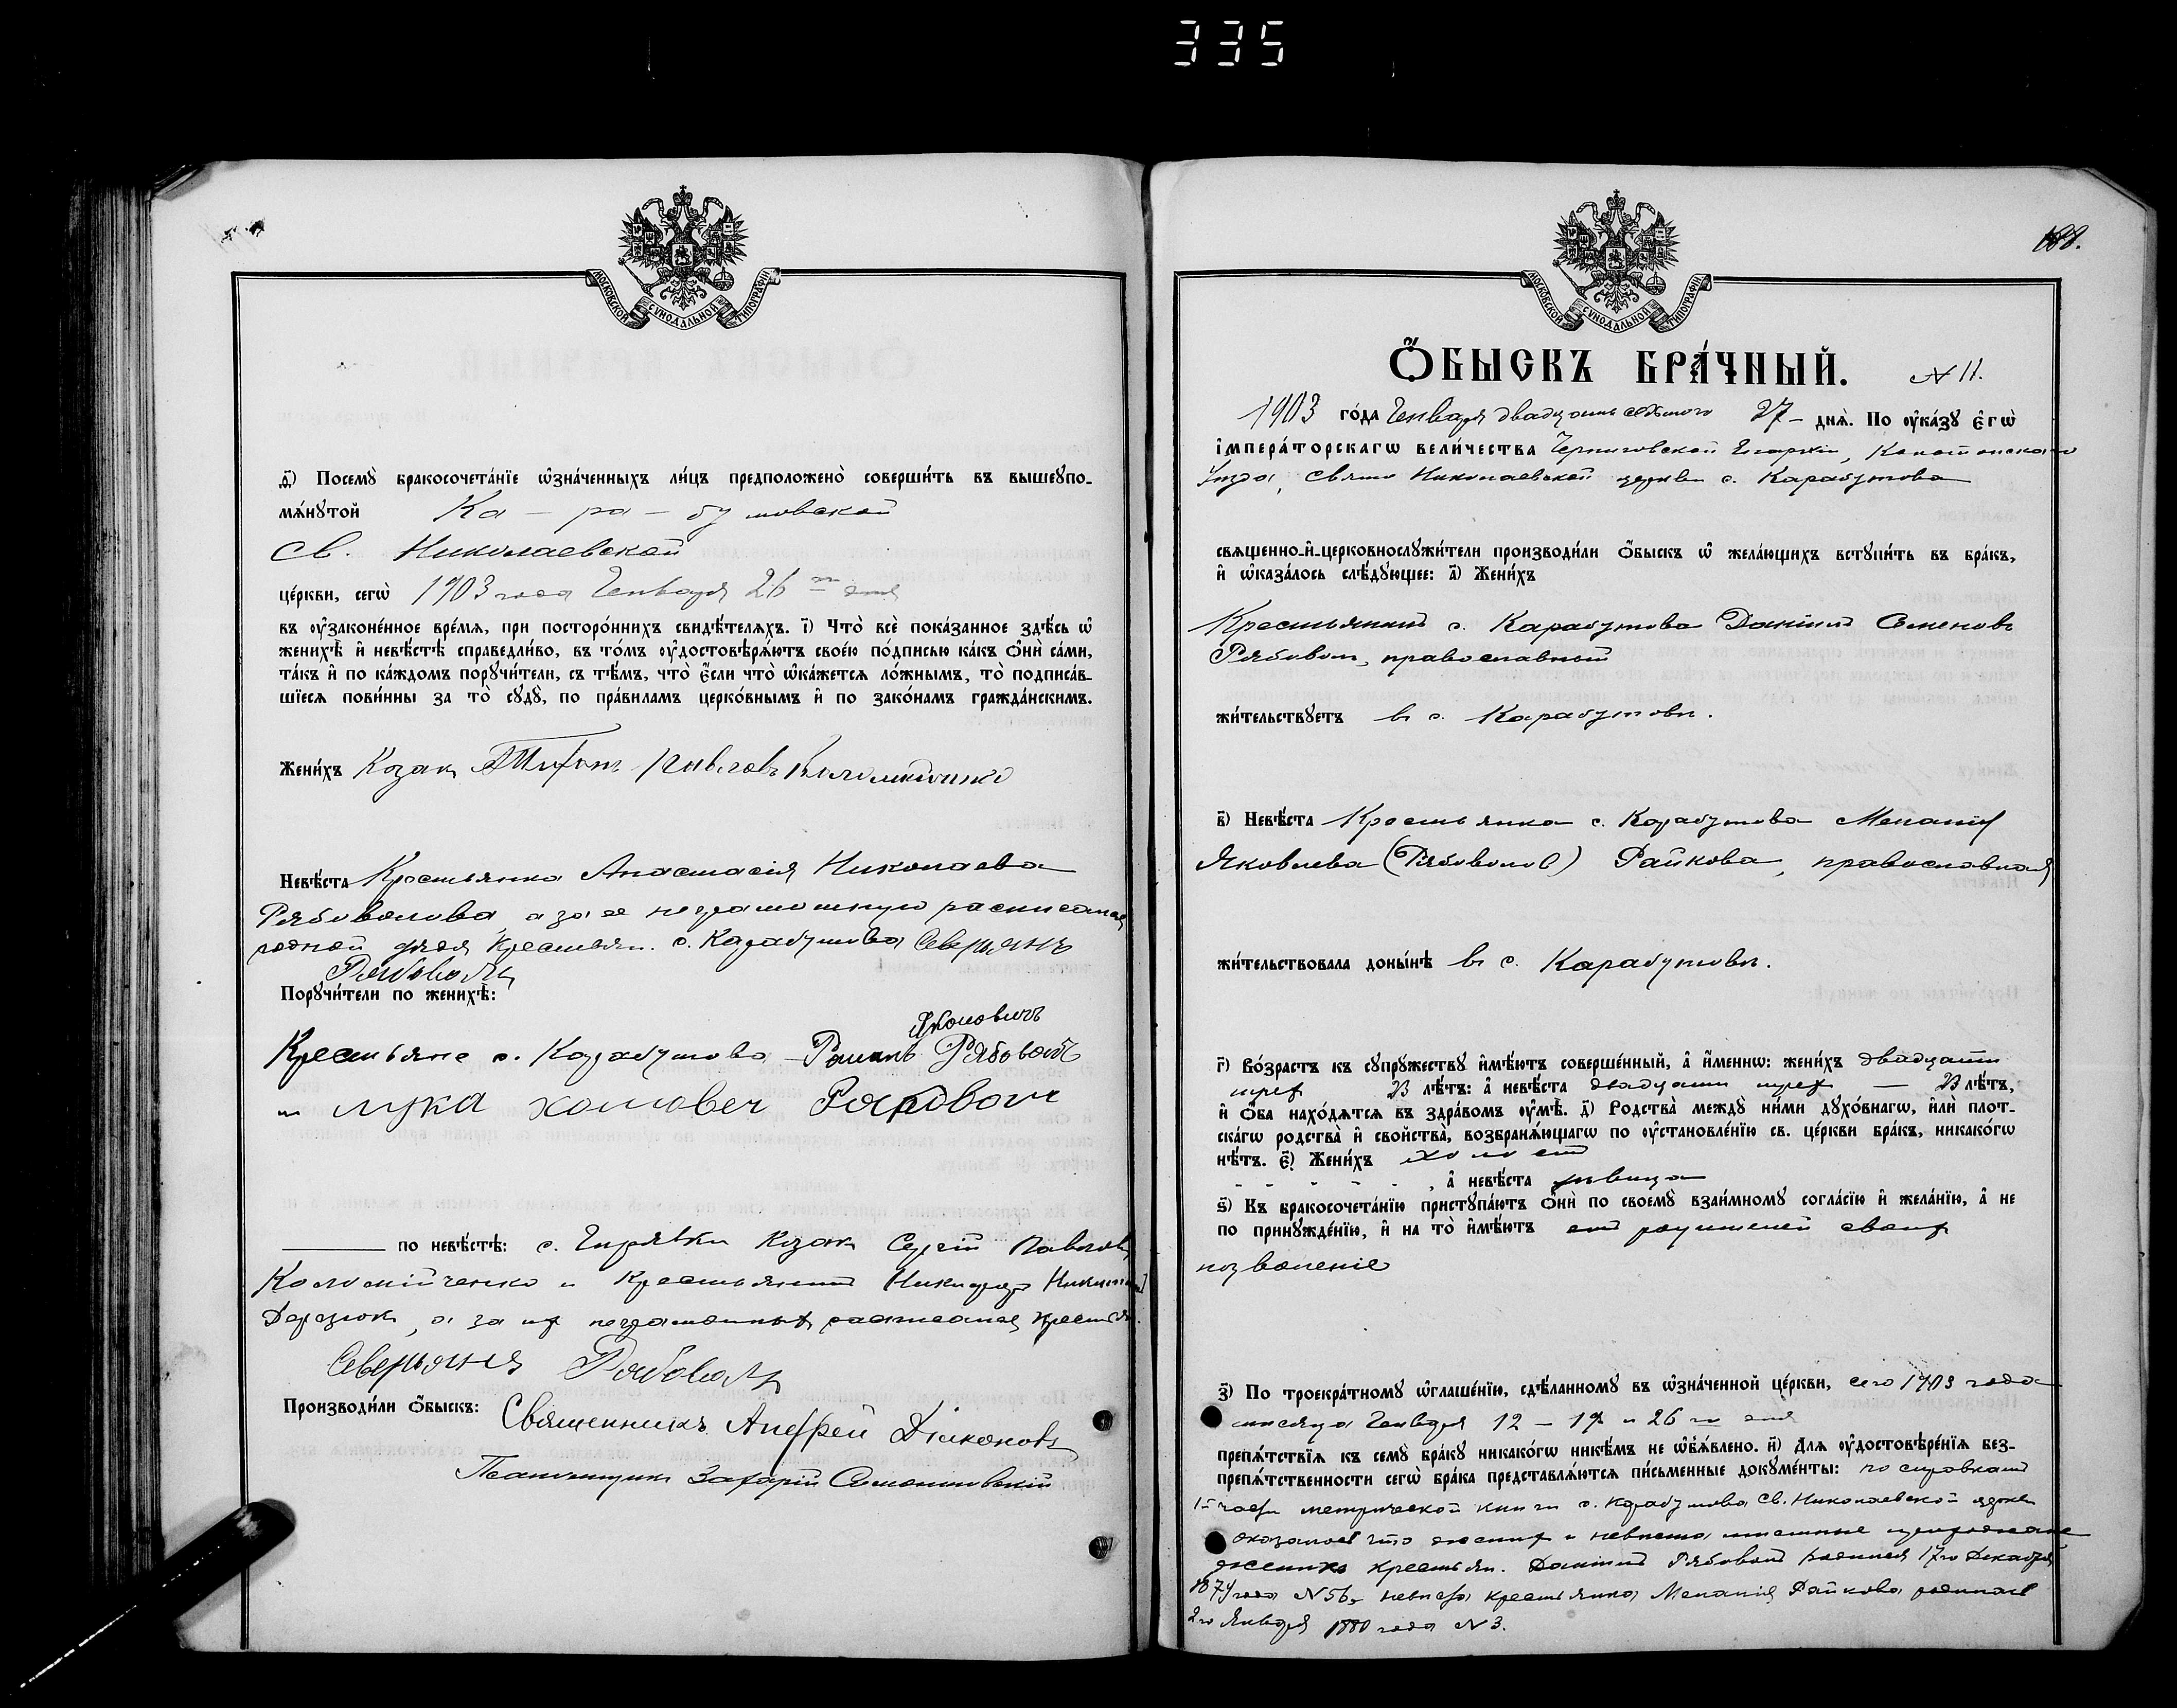 335
МОСКОВСКОЙ СУНОДАЛЬНОЙ ТИПОГРАФІИ
д҃) Посемꙋ̀ бракосочета́нїе ѡ҆зна́ченныхъ ли́цъ предположено̀ соверши́ть въ вышеꙋпо-
мѧ́нꙋтой Ка - ра - бутовской
Св. Николаевской
це́ркви, сегѡ̀ 1903 года Генваря 26 го дня
въ ᲂу҆зако́не́нное вре́мя, при посторо́ннихъ свидѣ́телѧхъ. і҃) Что̀ всѐ пока́занное здѣ́сь ѡ҆
женихѣ̀ и҆ невѣ́стѣ справедли́во, въ то́мъ ᲂу҆достовѣрѧ́ютъ свое́ю по́дписью ка́къ ѻ҆нѝ са́ми,
та́къ и҆ по ка́ждомъ порꙋчи́тели, съ тѣ́мъ, что̀ є҆́сли что̀ ѡ҆ка́жется ло́жнымъ, то̀ подписа́в-
шїеся пови́нны за то̀ сꙋдꙋ̀, по пра́виламъ церко́внымъ и҆ по зако́намъ гражда́нскимъ.
Жени́хъ Козакъ Павловъ Коломійченко
Невѣ́ста Крестьянка Анастасія Николаева
Рябоволова, а за ее неграмотную расписался
родной дядя крестьян. с. Карабутова Северьянъ
Рябоволъ
Порꙋчи́тели по женихѣ̀:
Якововичъ
Крестьяне с. Карабутова Романъ Рябоволъ
и лука хомовеч Рябовол
по невѣ́стѣ: с. Гирявки Козакъ Сергій Павловъ
Коломійченко и Крестьянинъ Никифоръ
а за их неграмотных расписался крестьян.
Северьянъ Рябоволъ
Производи́ли ѻ҆́быскъ: Священникъ Андрей Діаконовъ
Псаломщикъ Захарій
188.
Ѻ҆́БЫСКЪ БРА́ЧНЫЙ. N 11.
1903 го́да Генваря двадцать седьмого 27 - днѧ̀. По ᲂу҆ка́зꙋ є҆гѡ̀
і҆мпера́торскагѡ вели́чества Черниговской Епархіи, Конотопскаго
уезда, Свято Николаевской церкви с. Карабутова
свѧщенно-и҆-церковнослꙋжи́тели производи́ли ѻ҆́быскъ ѡ҆ жела́ющихъ встꙋпи́ть въ бра́къ,
и҆ ѡ҆каза́лось слѣ́дꙋющее: а҃) Жени́хъ
Крестьянинъ с. Карабутова Даніилъ Семеновъ
Рябоволъ, православный
жи́тельствꙋетъ въ с. Карабутовѣ.
в҃) Невѣ́ста Крестьянка с. Карабутова Меланія
Яковлева (Рябоволов) Райкова, православная
жи́тельствовала доны́нѣ въ с. Карабутовѣ.
г҃) Во́зрастъ къ сꙋпрꙋ́жествꙋ и҆мѣ́ютъ соверше́нный, а҆ и҆́меннѡ: жени́хъ двадцати
трех 23 лѣ́тъ: а҆ невѣ́ста двадцати трех — 23 лѣ́тъ,
и҆ ѻ҆́ба нахо́дѧтся въ здра́вомъ ᲂу҆мѣ̀. д҃) Родства̀ междꙋ̀ ни́ми дꙋхо́внагѡ, и҆лѝ плот-
ска́гѡ родства̀ и҆ сво́йства̀, возбранѧ́ющагѡ по ᲂу҆становле́нїю св. це́ркви бра́къ, никако́гѡ
нѣ́тъ. є҃) Жени́хъ холостъ
, а҆ невѣ́ста дѣвица
ѕ҃) Къ бракосочета́нїю пристꙋпа́ютъ ѻ҆нѝ по своемꙋ̀ взаи́мномꙋ согла́сїю и҆ жела́нїю, а҆ не
по принꙋжде́нїю, и҆ на то̀ и҆мѣ́ютъ отъ родителей своих
позволеніе
з҃) По троекра́тномꙋ ѡ҆глаше́нїю, сдѣ́ланномꙋ въ ѡ҆зна́ченной це́ркви, сего 1903 года
месяца Генваря 12 - 19 и 26 го дня
препѧ́тствїя къ семꙋ̀ бра́кꙋ никако́гѡ никѣ́мъ не ѡ҆б̾ѧ́влено. и҃) Для ᲂу҆достовѣре́нїя без-
препѧ́тственности сегѡ̀ бра́ка представля́ются пи́сьменные докꙋме́нты: по справкам
1й части метрической книги с. Карабутова Св. Николаевской церкви
оказалось что жених и невеста
жених крестьян. Даніилъ Рябоволъ родился 17го Декабря
1879 года N 56, невеста крестьянка Меланія Райкова родилась
2го Января 1880 года N 3.